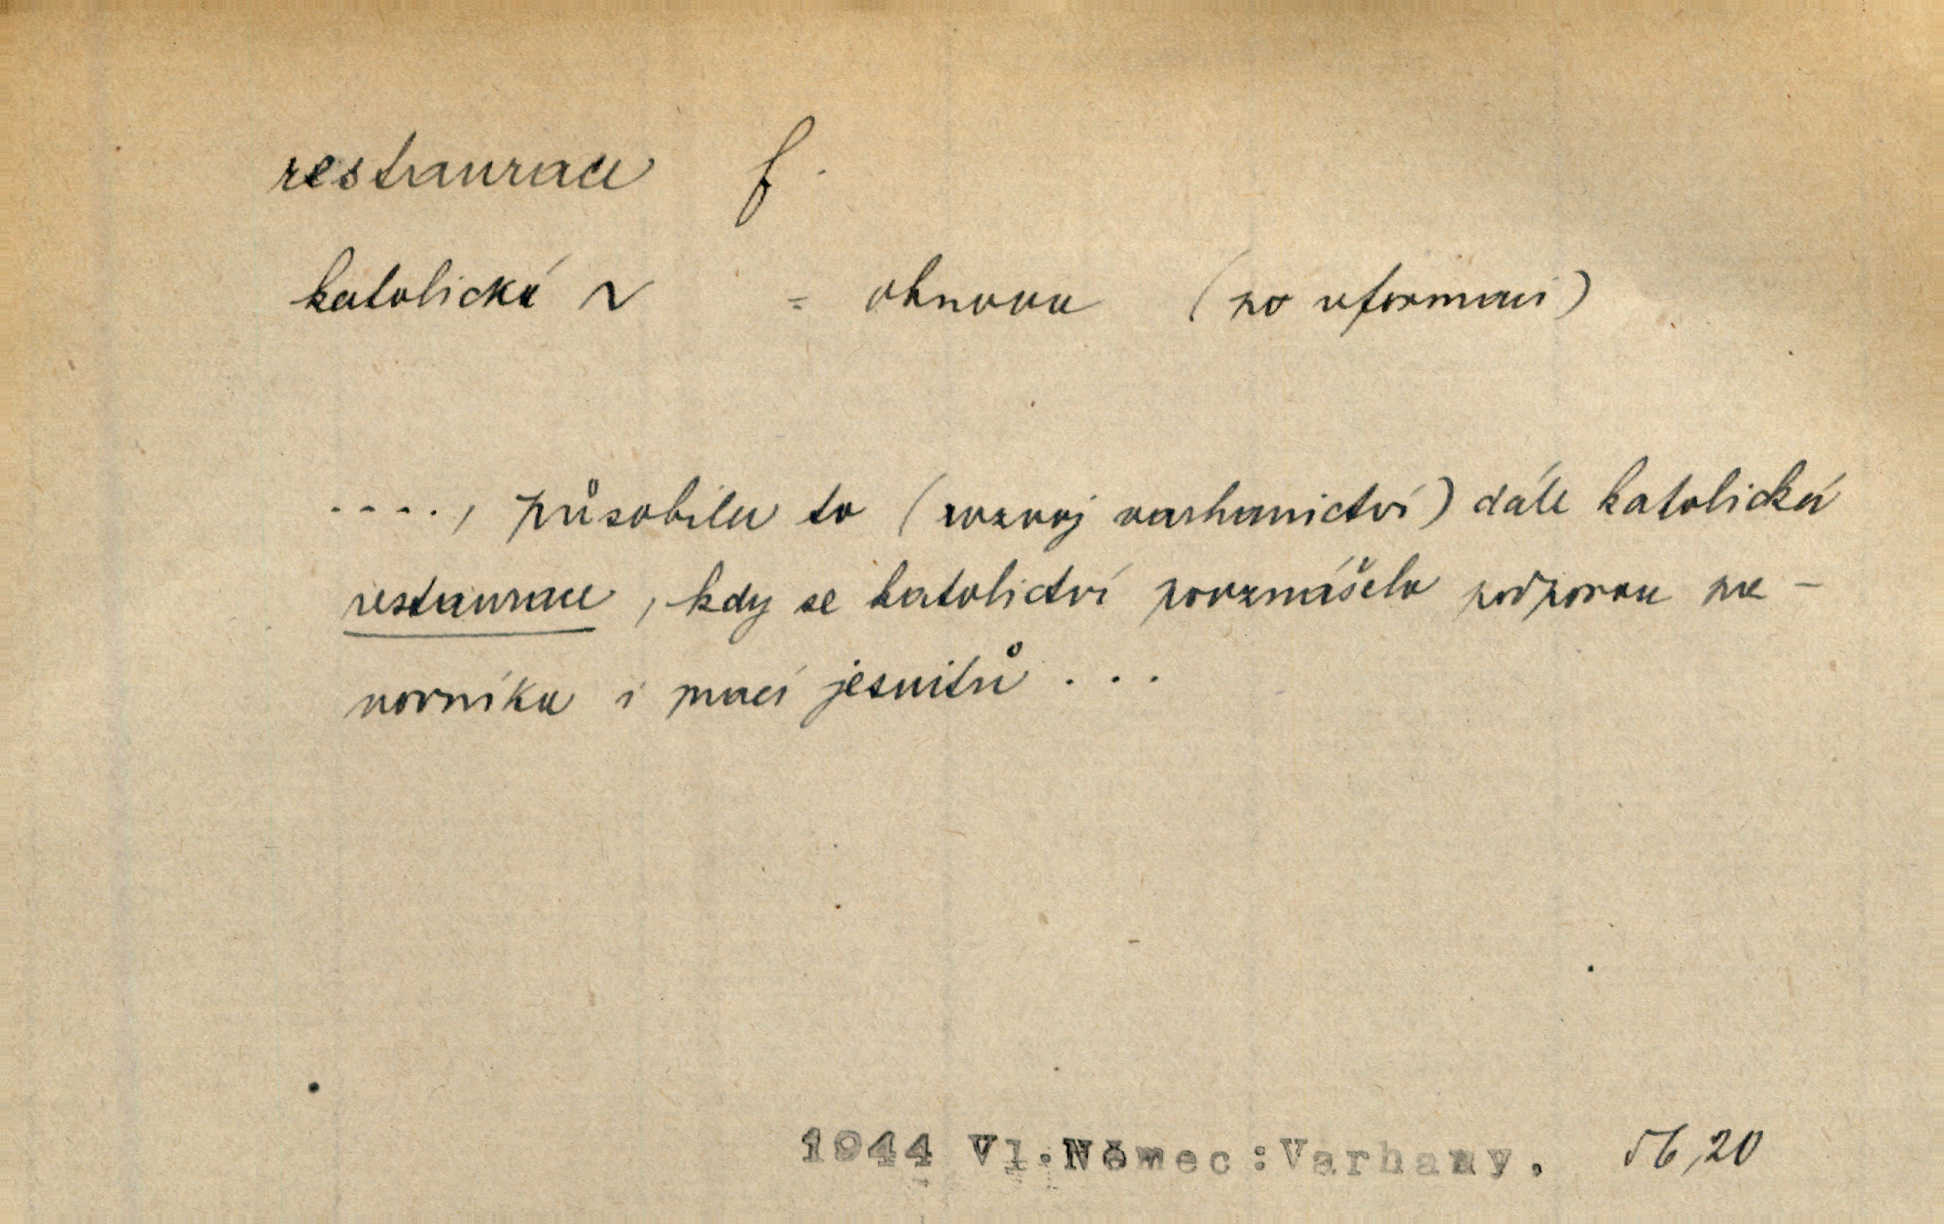 restaurace f.
katolická ~ = obnova (po reformaci)
...., působila to (rozvoj varhanictví) dále katolická
restaurace, kdy se katolictví povznášelo podporou pa-
novníka i prací jesuitů ...
1944 Vl.Němec:Varhany. 56,20